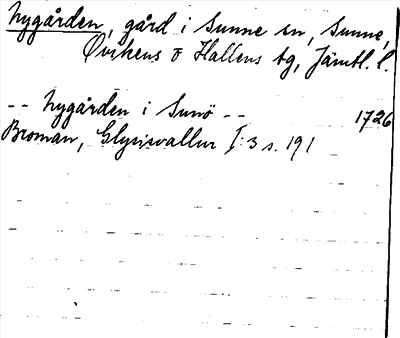 Nygården, gård i Sunne sn, Sunne,
Ovikens o Hallens tg, Jämtl. l.
-- Nygården i Sunö -- 1726
Broman, Glysisvallur I:3 s. 191